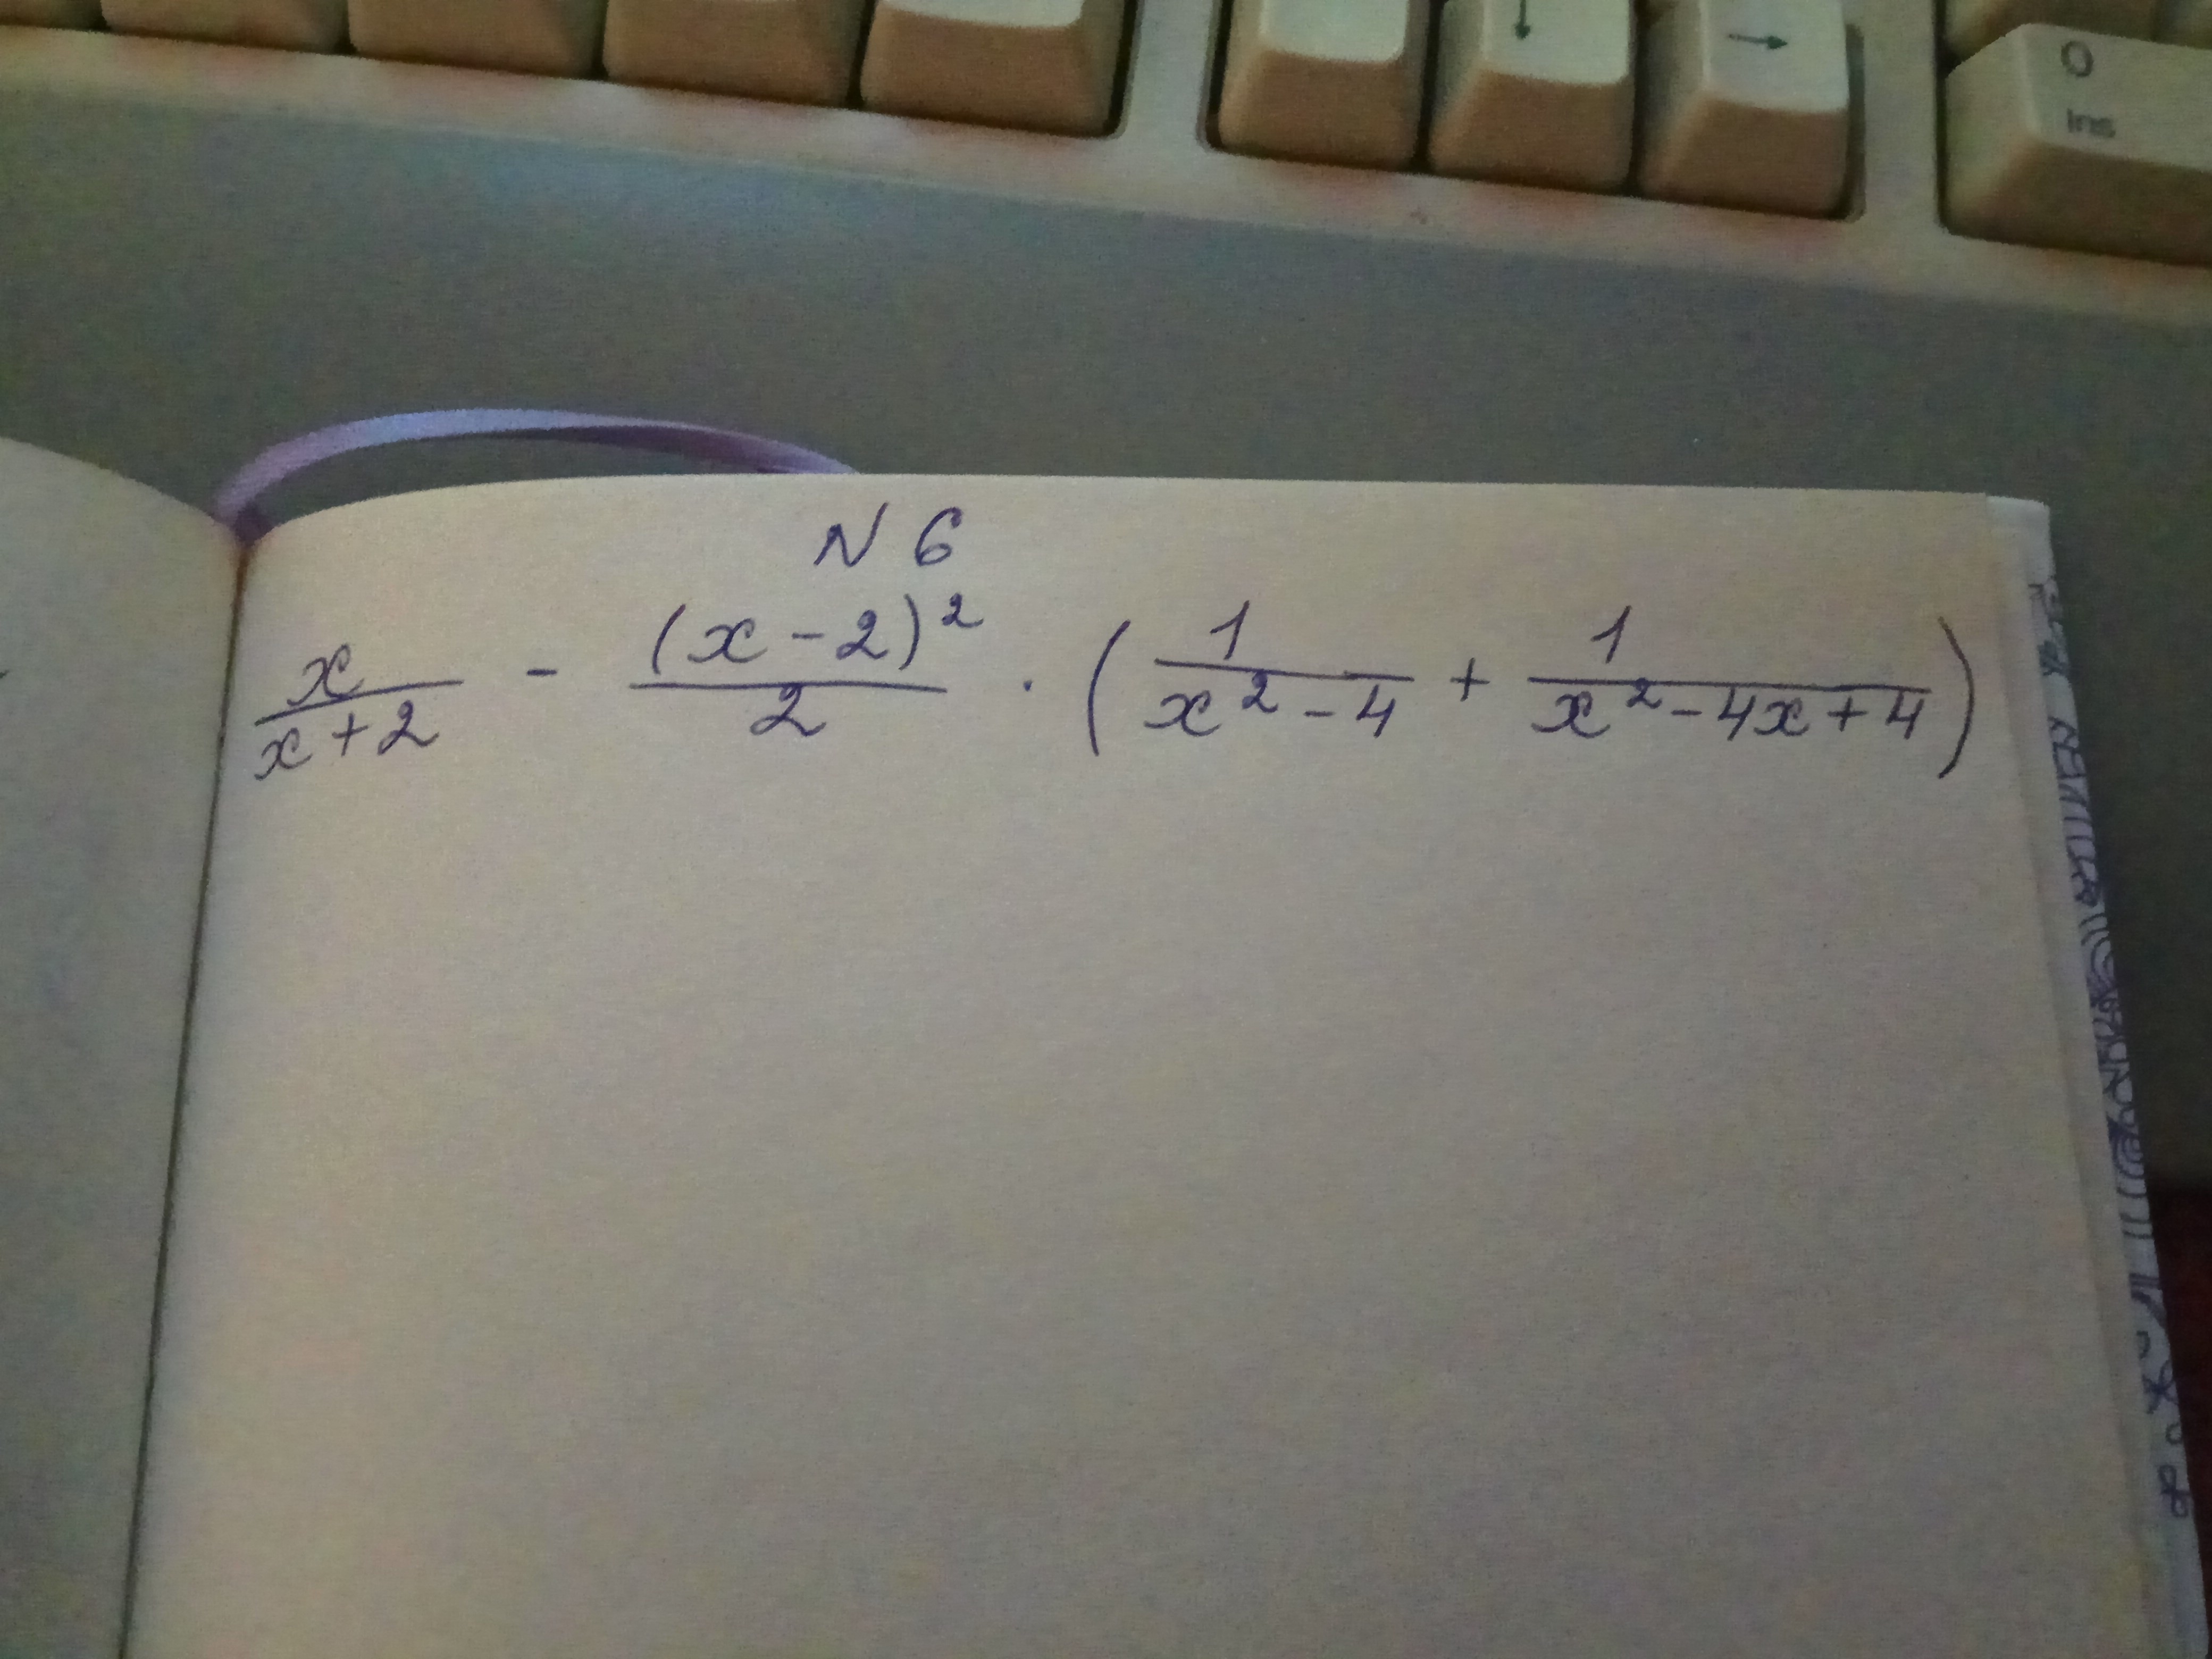 0
Ins
↓
→
N 6
x/(x+2) - (x-2)²/2 · (1/(x²-4) + 1/(x²-4x+4))